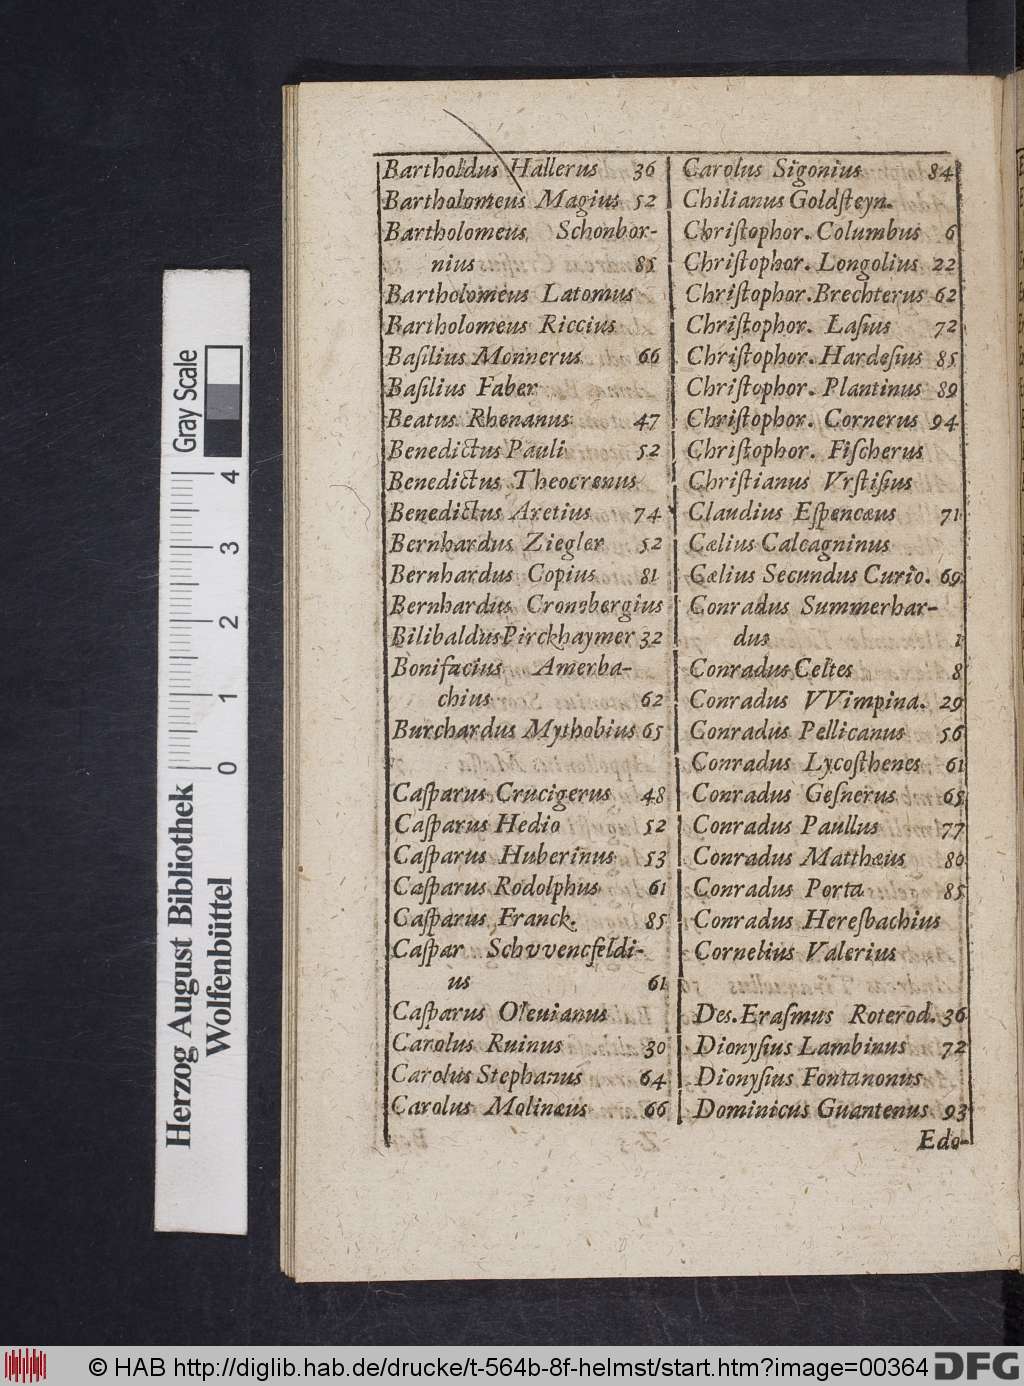 Bartholdus Hallerus 36
Bartholomeus Magius 52
Bartholomeus Schonbor-
nius 85
Bartholomeus Latomus
Bartholomeus Riccius
Baſilius Monnerus 66
Baſilius Faber
Beatus Rhenanus 47
Benedictus Pauli 52
Benedictus Theocrenus
Benedictus Aretius 74
Bernhardus Ziegler 52
Bernhardus Copius 81
Bernhardus Cronsbergius
Bilibaldus Pirckhaymer 32
Bonifacius Amerba-
chius 62
Burchardus Mythobius 65
Caſparus Crucigerus 48
Caſparus Hedio 52
Caſparus Huberinus 53
Caſparus Rodolphus 61
Caſparus Franck. 85
Caſpar Schvvencfeldi-
us 61
Caſparus Oleuianus
Carolus Ruinus 30
Carolus Stephanus 64
Carolus Molinæus 66
Carolus Sigonius 84
Chilianus Goldſteyn.
Chriſtophor. Columbus 6
Chriſtophor. Longolius 22
Chriſtophor. Brechterus 62
Chriſtophor. Laſius 72
Chriſtophor. Hardeſius 85
Chriſtophor. Plantinus 89
Chriſtophor. Cornerus 94
Chriſtophor. Fiſcherus
Chriſtianus Vrſtiſius
Claudius Eſpencæus 71
Cælius Calcagninus
Cælius Secundus Curio. 69
Conradus Summerhar-
dus 1
Conradus Celtes 8
Conradus VVimpina. 29
Conradus Pellicanus 56
Conradus Lycoſthenes 61
Conradus Geſnerus 65
Conradus Paullus 77
Conradus Matthæus 80
Conradus Porta 85
Conradus Heresbachius
Cornelius Valerius
Des. Eraſmus Roterod. 36
Dionyſius Lambinus 72
Dionyſius Fontanonus
Dominicus Guantenus 93
Edo-
Gray Scale
0 1 2 3 4
Herzog August Bibliothek
Wolfenbüttel
© HAB http://diglib.hab.de/drucke/t-564b-8f-helmst/start.htm?image=00364
DFG